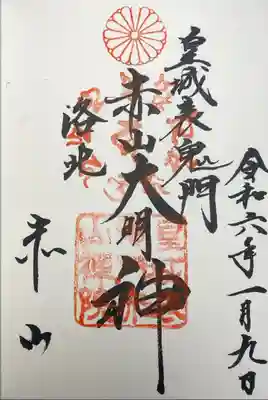 令和六年一月九日
皇城表鬼門
赤山大明神
洛北
赤山